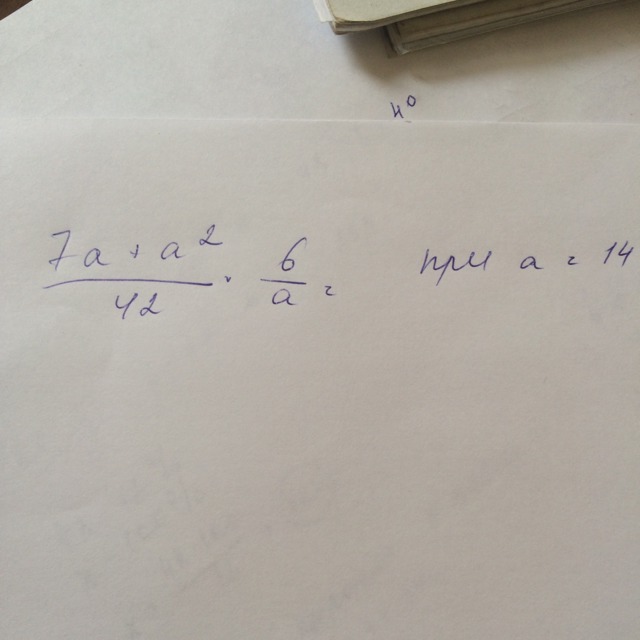 н⁰
(7a + a²)/42 · 6/a = при a = 14